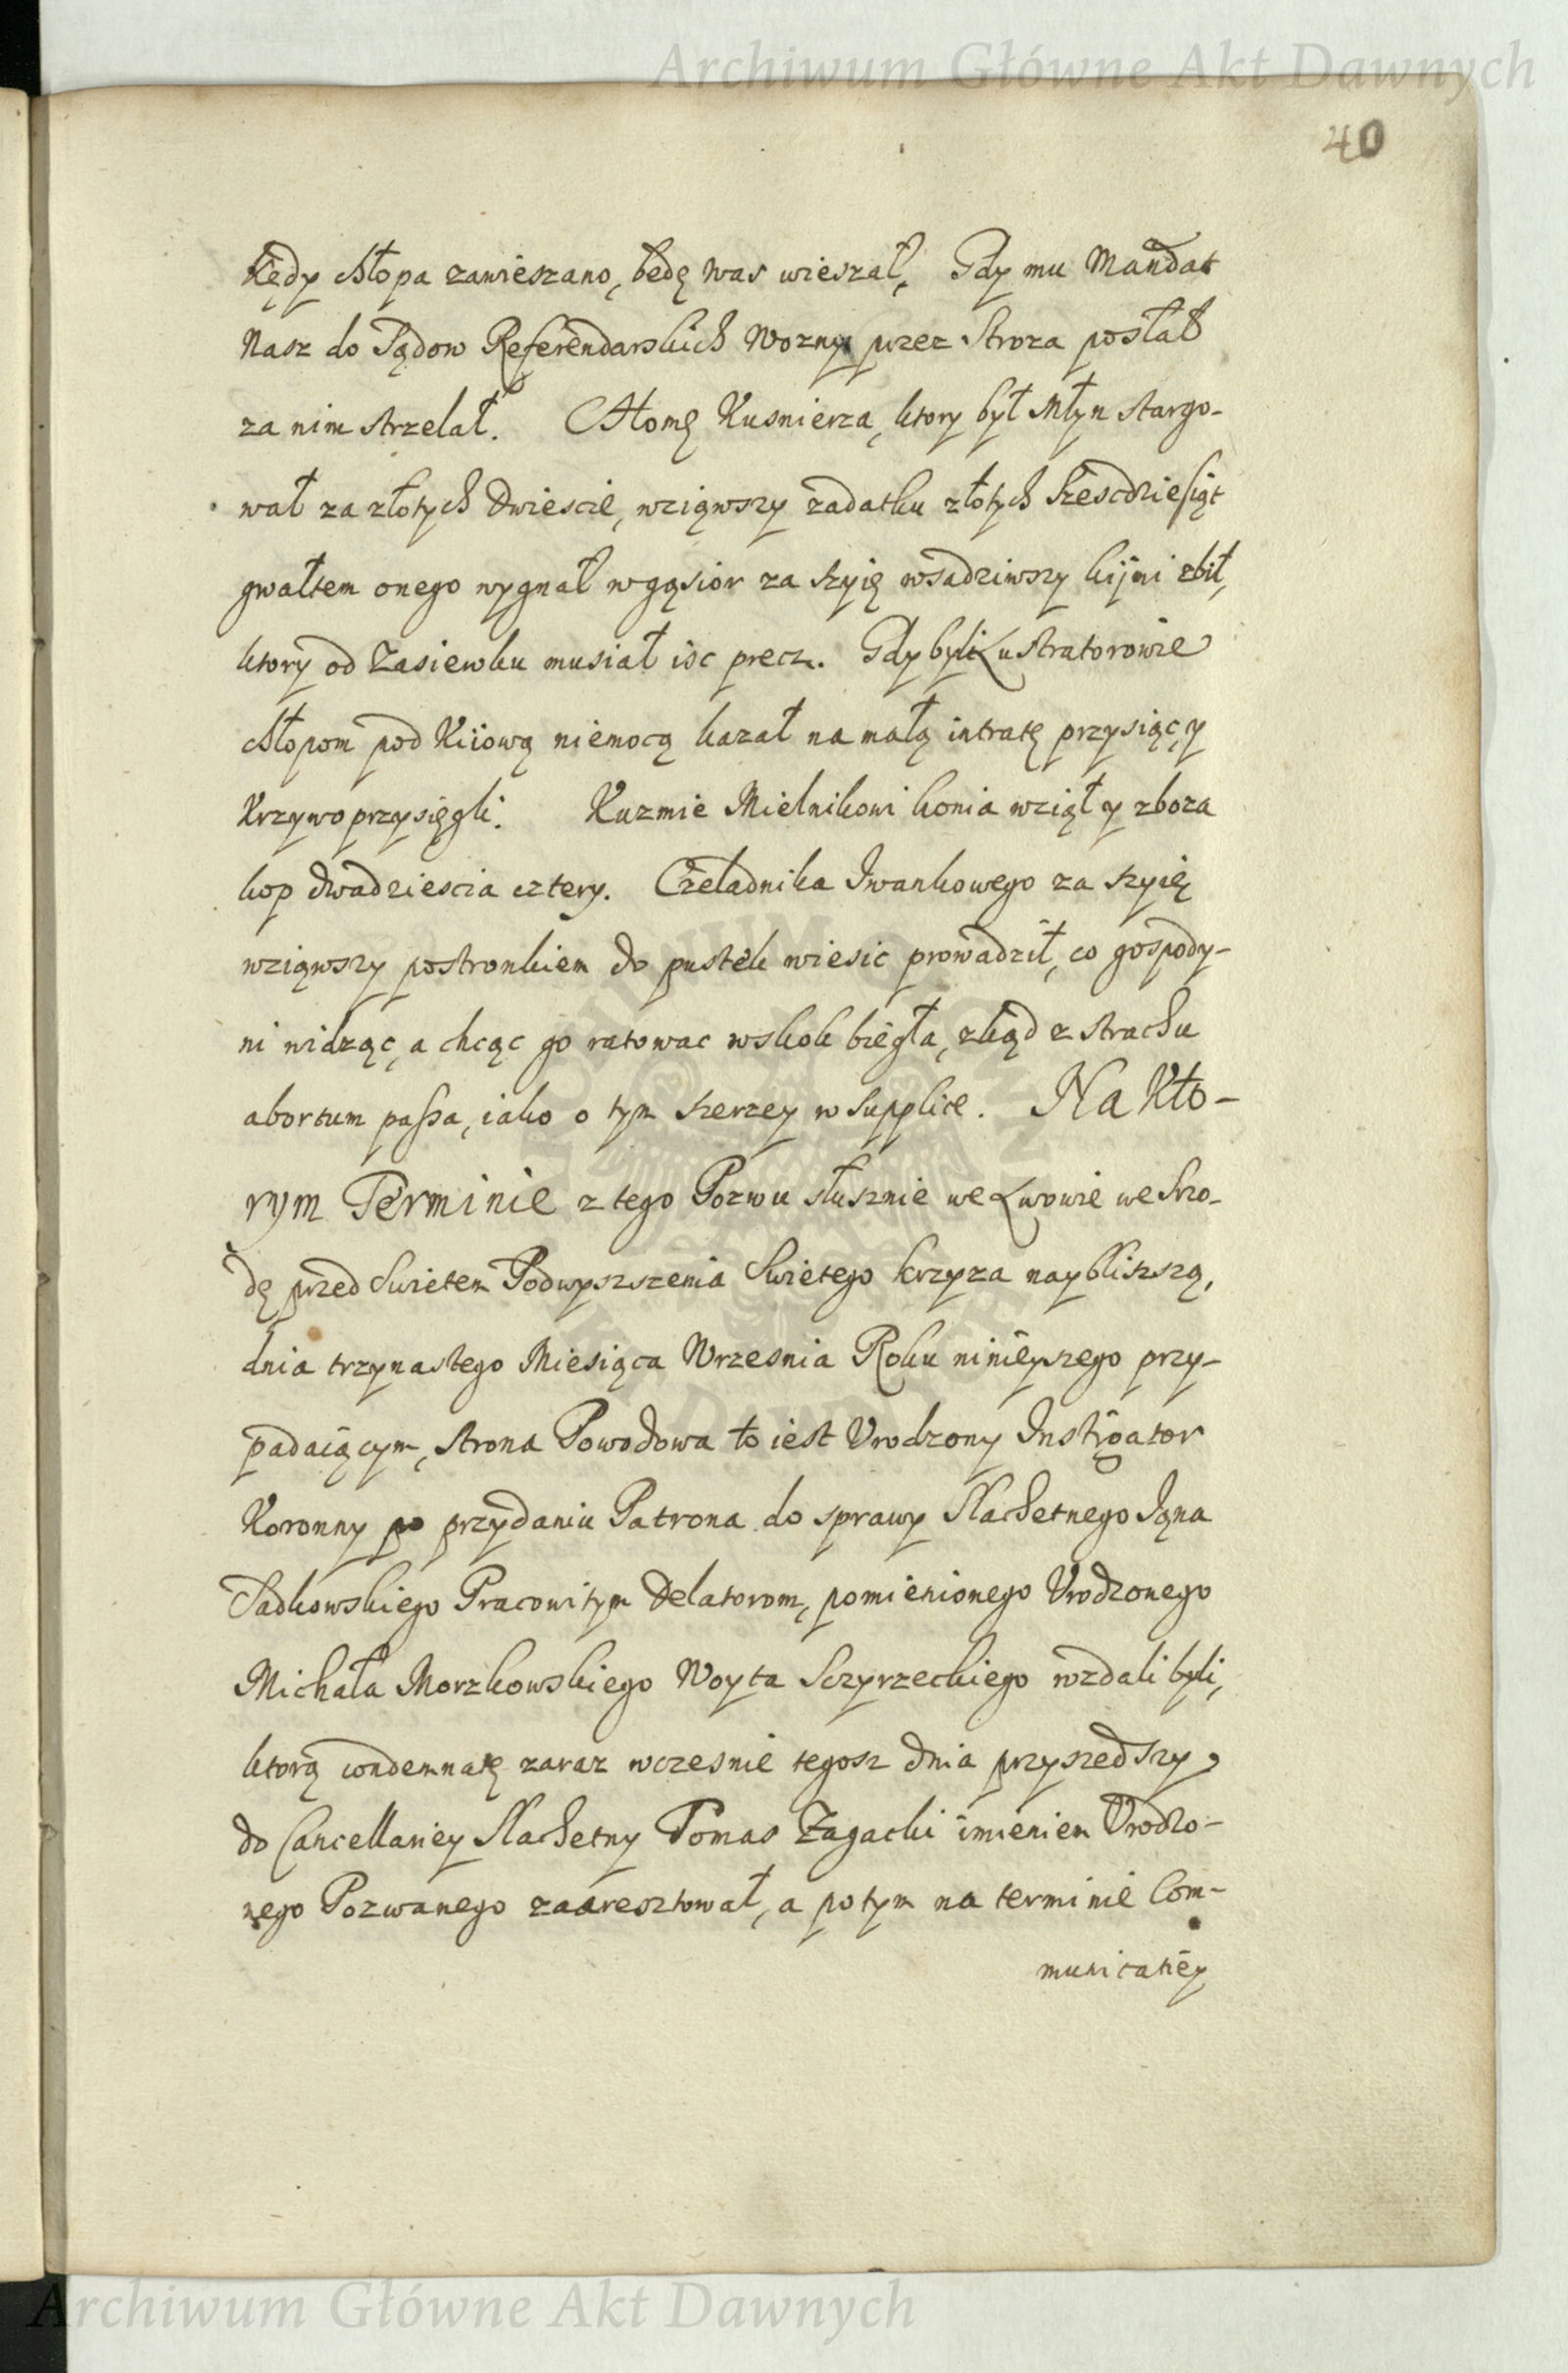 Archiwum Główne Akt Dawnych
40
Kędy chłopa zawieszano, będę was wieszał, Gdy mu Mandat
Nasz do Sądow Referendarskich Wozny przez Stroza posłał
za nim strzelał. Chomę Kusnierza, ktory był Młyn stargo-
wał za złotych dwiescie, wziąwszy zadatku złotych szescdziesiąt
gwałtem onego wygnał w gąsior za szyię wsadziwszy kijmi zbił,
ktory od Zasiewku musiał isc precz. Gdy byli Lustratorowie
chłopom pod Kiiową niemocą kazał na małą intratę przysiąc, y
Krzywoprzysięgli. Kuzmie Mielnikowi konia wziął y zboza
kop dwadziescia cztery. Czeladnika Iwankowego za szyię
wziąwszy postronkiem do pustek wiesic prowadził, co gospody-
ni widząc, a chcąc go ratowac wskok biegła, zkąd z strachu
abortum passa, iako o tym szerzey w supplice. Na Kto-
rym Terminie z tego Pozwu słusznie we Lwowie we Srzo-
dę przed Swietem Podwyszszenia Swietego Krzyza nayblisszą,
dnia trzynastego Miesiąca Wrzesnia Roku ninieyszego przy-
padaiącym, strona Powodowa to iest Urodzony Instigator
Koronny po przydaniu Patrona do sprawy Slachetnego Jąna
Sadkowskiego Pracowitym Delatorom, pomienionego Urodzonego
Michała Morzkowskiego Woyta Sczyrzeckiego wzdali byli,
ktorą condemnatę zaraz wczesnie tegosz dnia przyszedszy
do Cancellariey Slachetny Tomas Zagacki imieniem Urodzo-
nego Pozwanego zaaresztował, a potym na terminie Com-
municatiey
Archiwum Główne Akt Dawnych